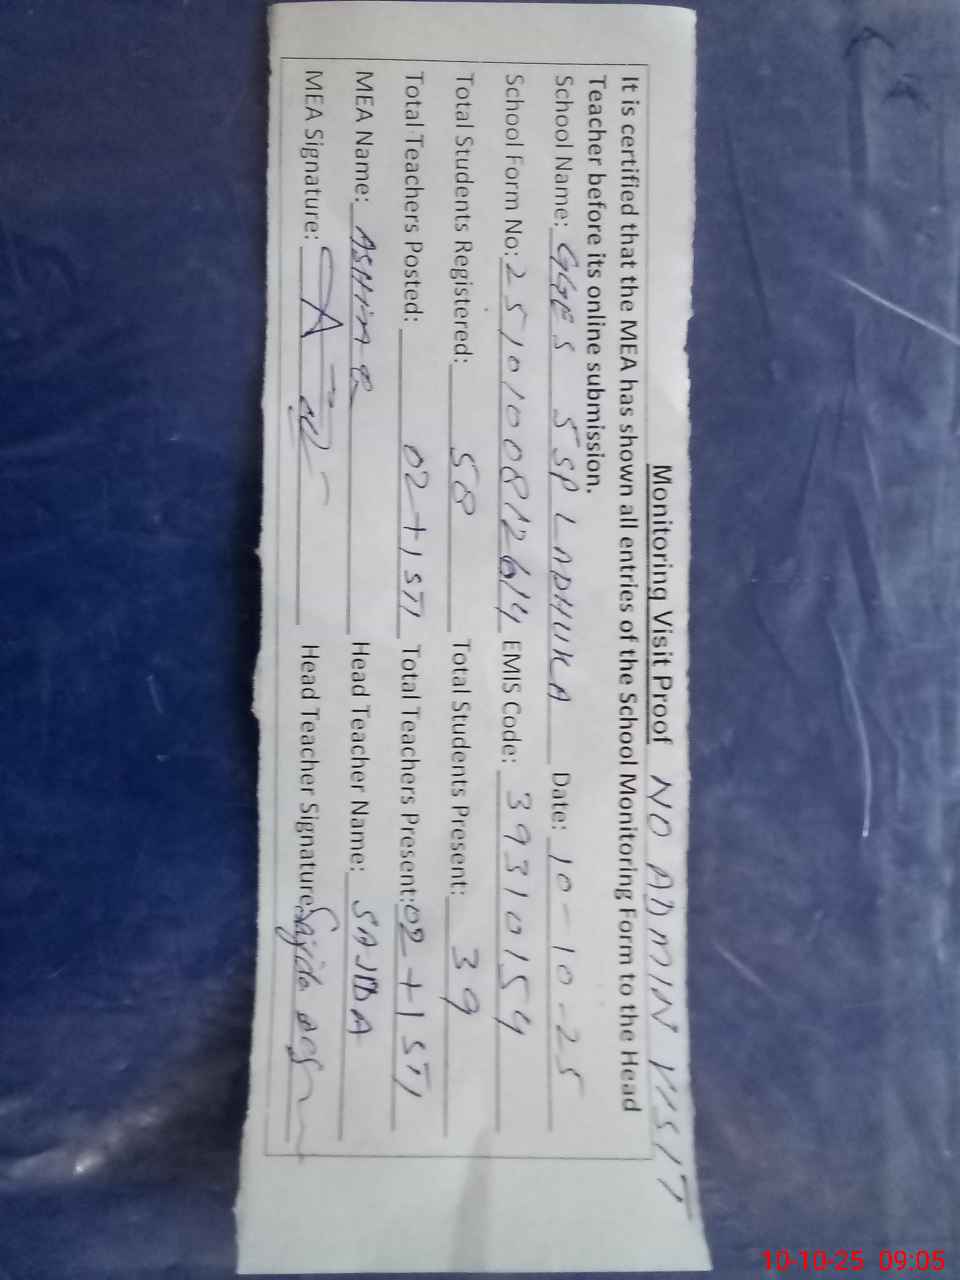 Monitoring Visit Proof NO ADMIN VISIT
It is certified that the MEA has shown all entries of the School Monitoring Form to the Head
Teacher before its online submission.
School Name: GGES 5SP LADHUKA Date: 10-10-25
School Form No: 2510100812614 EMIS Code: 39310154
Total Students Registered: 58 Total Students Present: 39
Total Teachers Posted: 02+1 STI Total Teachers Present: 02+1 STI
MEA Name: ASHFAQ Head Teacher Name: SAJIDA
MEA Signature: Head Teacher Signature: Sajida
10-10-25 09:05